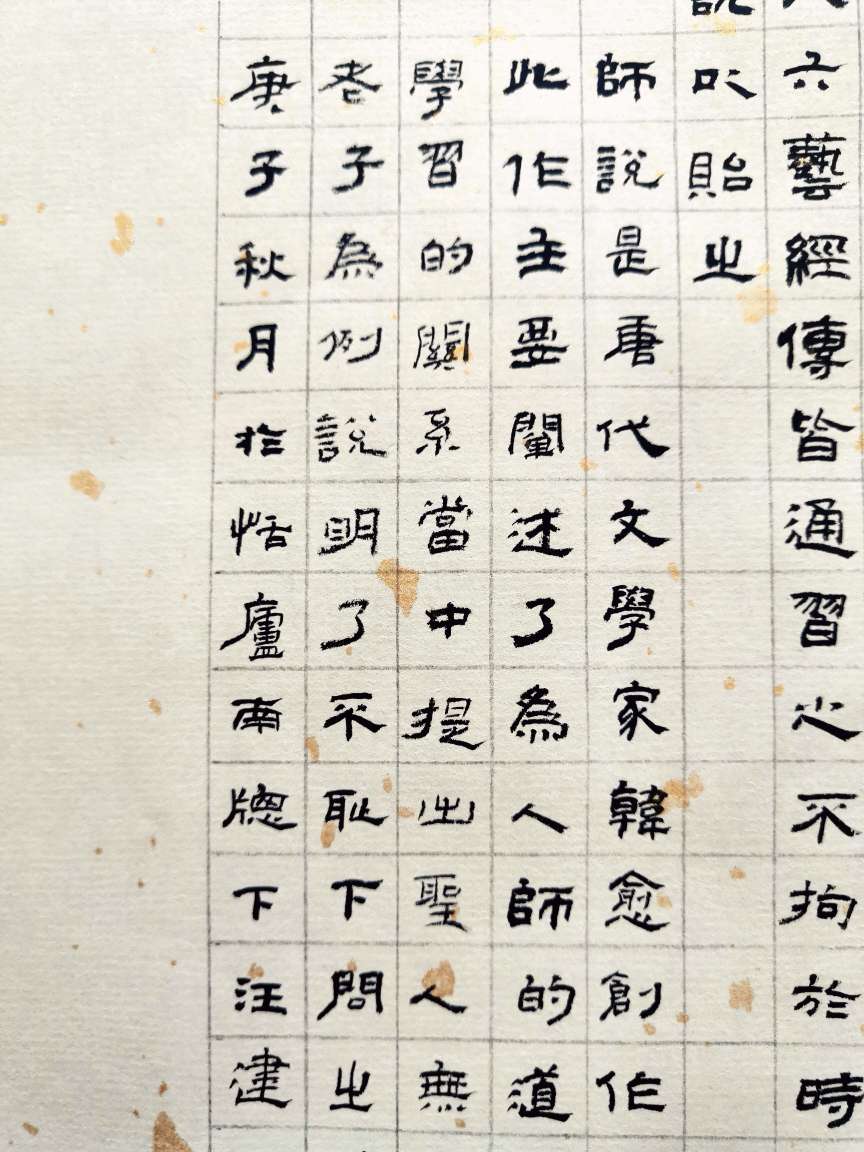 六藝經傳皆通習之不拘於時
說以貽之
師說是唐代文學家韓愈創作
此作主要闡述了為人師的道
學習的關系當中提出聖人無
老子為例說明了不耻下問之
庚子秋月於恬廬南牕下汪建